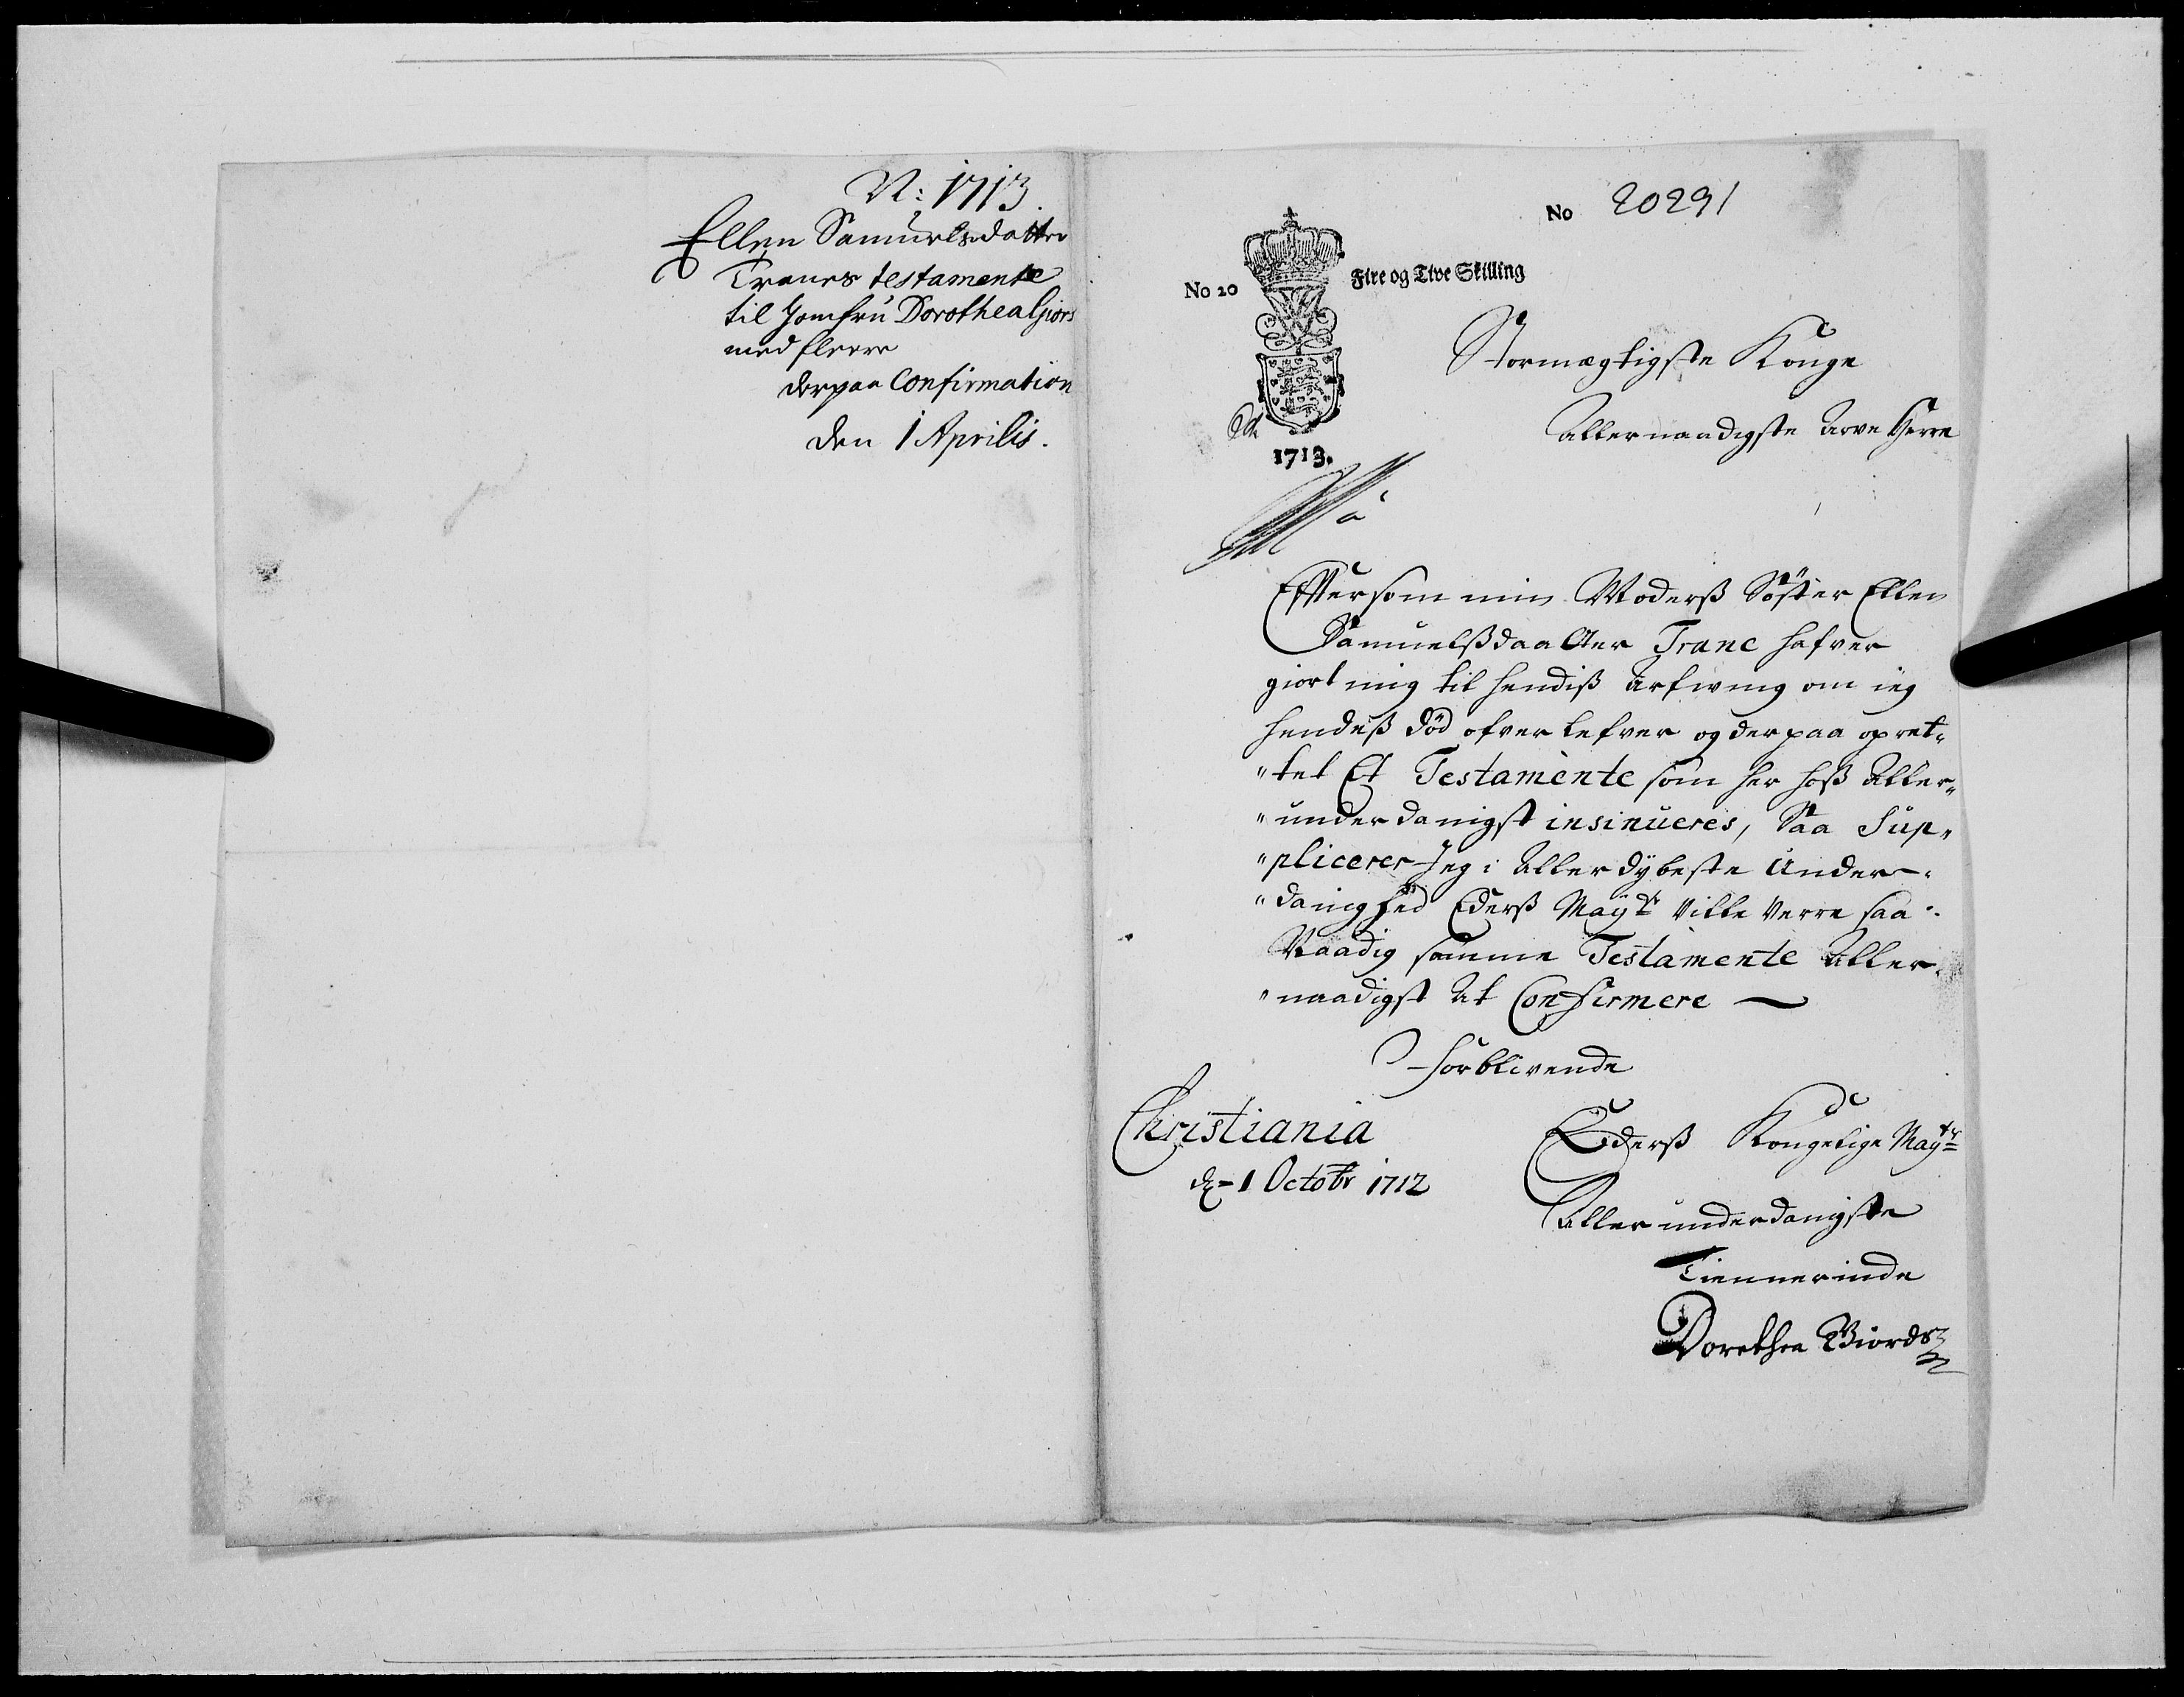 N: 1713.
Ellen Samuelsdatter
Tranes testamente
til Jomfru Dorothea Giørs
med fleere
derpaa Confirmation
den 1 Aprilis.
No 20291
No 20
Fire og Tive Skilling
1713.
Stormægtigste Konge
Allernaadigste Arve Herre
Effter som min Moderß Söster Ellen
Samuelßdaatter Trane hafver
giort mig til hendiß Arfving om ieg
hendeß död ofver lefver og der paa opret„
„tet Et Testamente som her hoß Aller„
„underdanigst insinueres, Saa Sup„
„plicerer Jeg i Allerdÿbeste Under„
„danighed Ederß Maÿtt Ville Verre saa
Naadig samme Testamente Aller„
„naadigst At Confirmere
forblivende
Christiania
d: 1 Octobr 1712
Ederß Kongelige Maytz
Aller underdanigste
Tiennerinde
Dorethea Giords